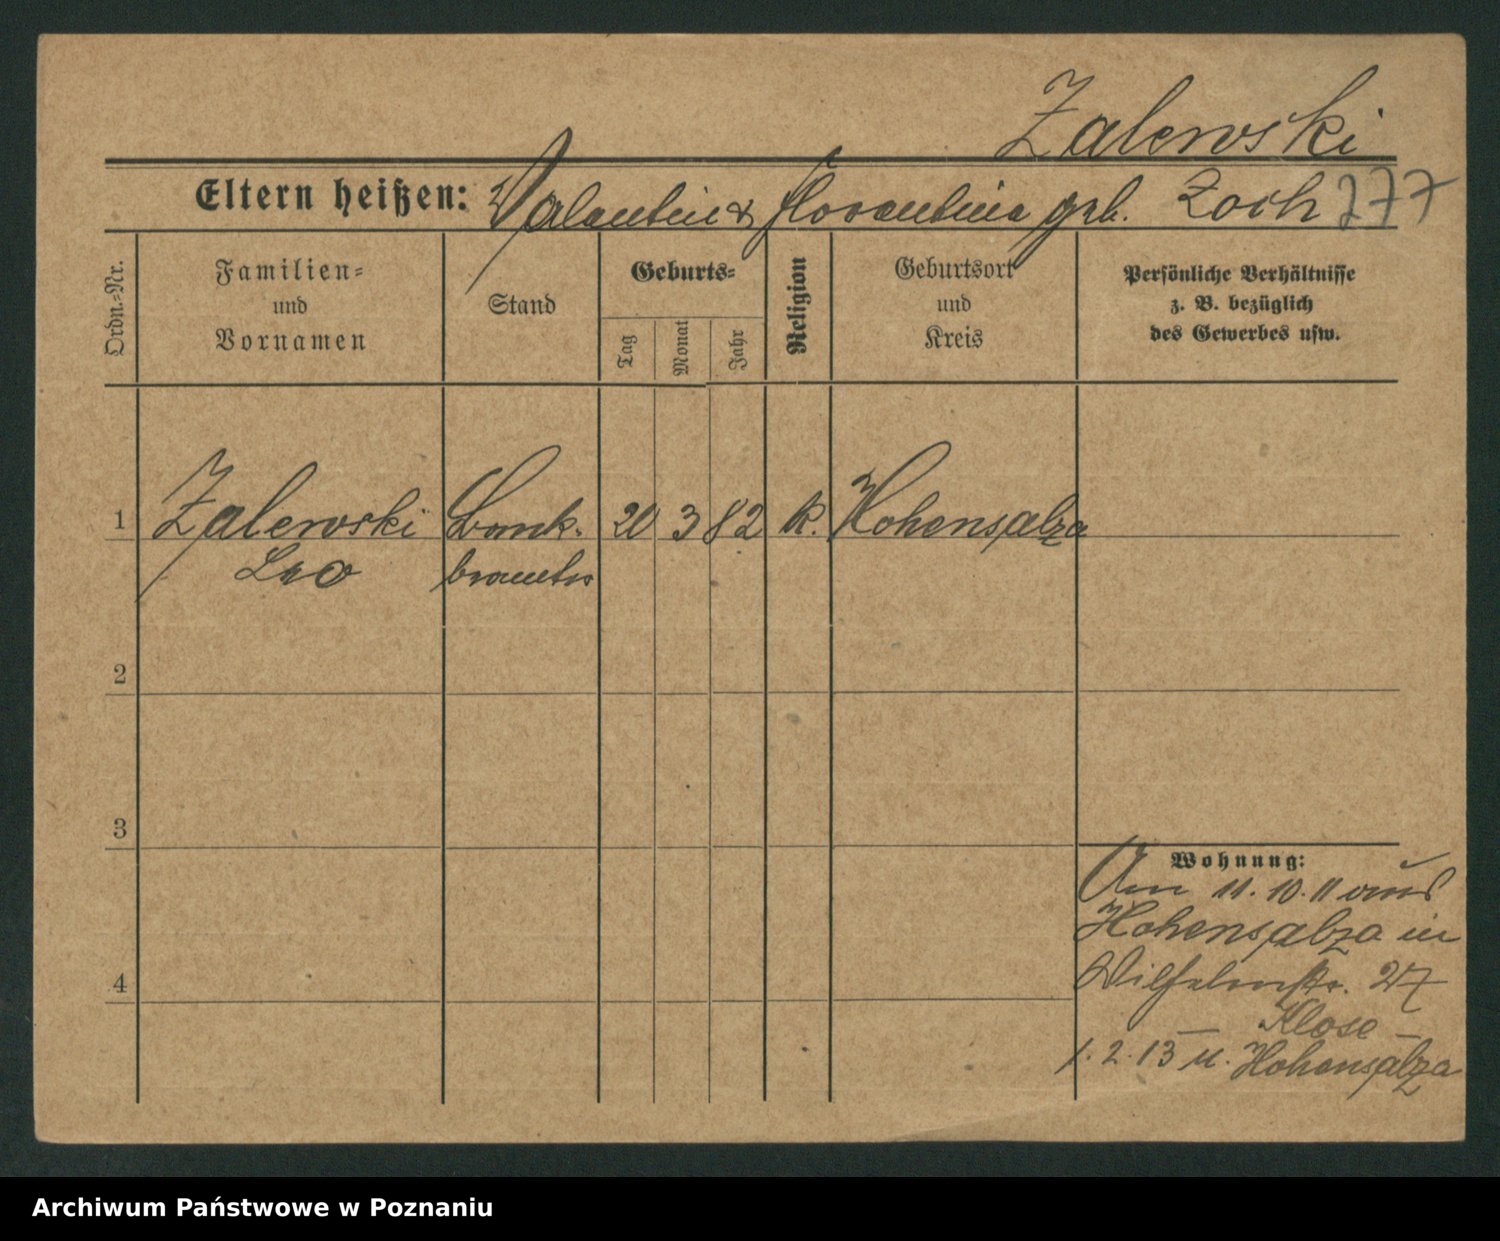 Zalewski
Eltern heißen: Valentin & Florentina geb. Zoch 277
Ordn.-Nr.
Familien-
und
Vornamen
Stand
Geburts-
Tag
Monat
Jahr
Religion
Geburtsort
und
Kreis
Persönliche Verhältnisse
z. B. bezüglich
des Gewerbes usw.
1 Zalewski Bank- 20 3 82 k. Hohensalza
Leo beamter
2
3
Wohnung:
Am 11.10.11 aus
Hohensalza in
4
Wilhelmstr. 27
— Klose —
1.2.13 n. Hohensalza
Archiwum Państwowe w Poznaniu